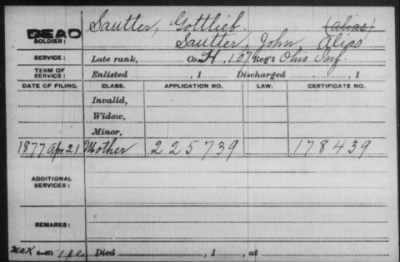 Sautter, Gottlieb. (alias)
DEAD
SOLDIER: Sautter, John, Alias
SERVICE: Late rank, Co. H, 107 Reg't Ohio Inf.
TERM OF SERVICE: Enlisted , 1 Discharged , 1
DATE OF FILING. CLASS. APPLICATION NO. LAW. CERTIFICATE NO.
Invalid,
Widow,
Minor,
1877 Apr 21. Mother 225739 178439
ADDITIONAL SERVICES:
REMARKS:
Died , 1 , at